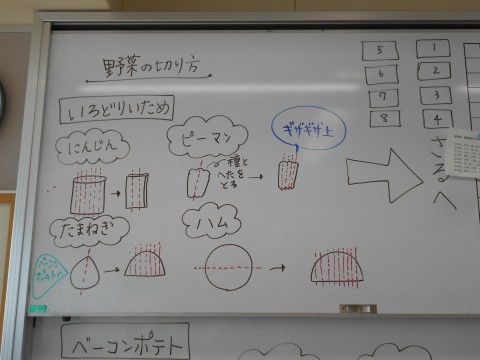 野菜の切り方
いろどりいため
にんじん
ピーマン
ギザギザ上
種と
へたを
とる
たまねぎ
ハム
ベーコン
ポテトへ
ざるへ
5
1
6
2
7
3
8
4
ベーコンポテト